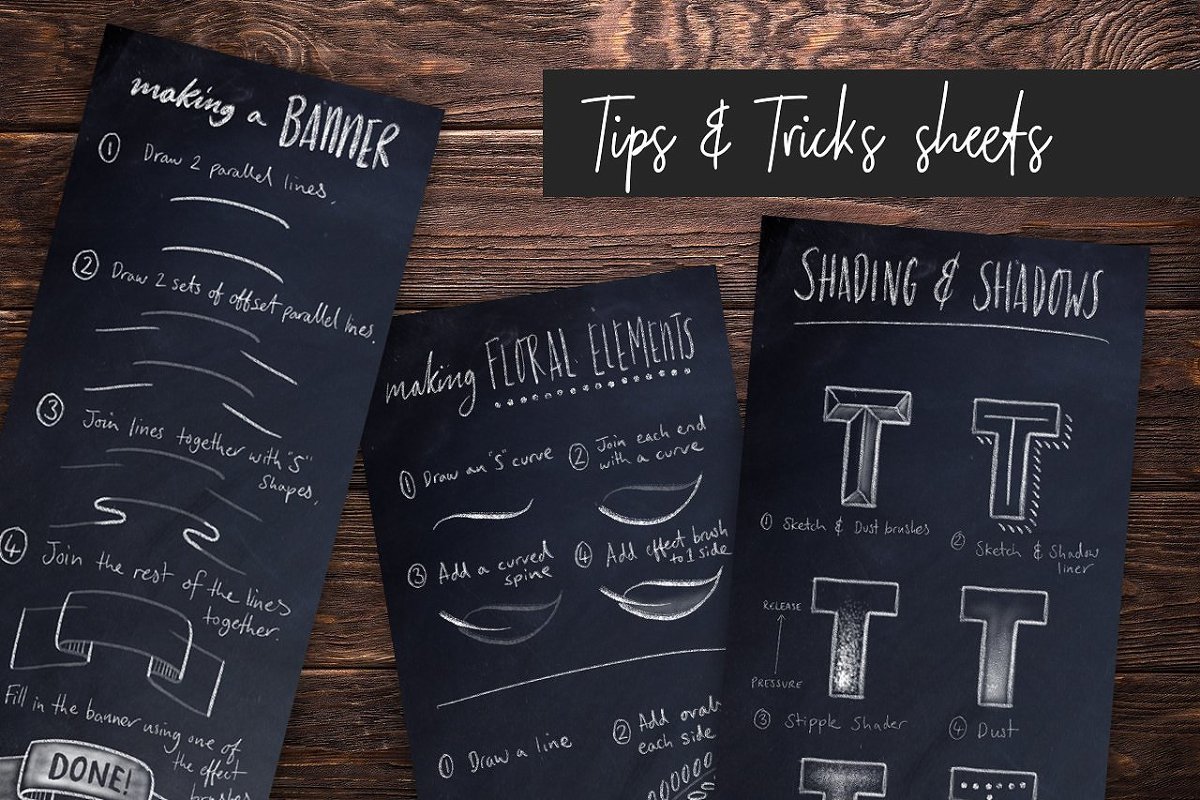 Tips & Tricks sheets
making a BANNER
1 Draw 2 parallel lines.
2 Draw 2 sets of offset parallel lines.
3 Join lines together with "S"
shapes,
4 Join the rest of the lines
together.
Fill in the banner using one of
the effect
brushes
DONE!
making FLORAL ELEMENTS
1 Draw an "S" curve
2 Join each end
with a curve
3 Add a curved
spine
4 Add effect brush
to 1 side
1 Draw a line
2 Add ovals
each side
SHADING & SHADOWS
T
T
1 Sketch & Dust brushes
2 Sketch & Shadow
liner
RELEASE
PRESSURE
T
T
3 Stipple Shader
4 Dust
T
T